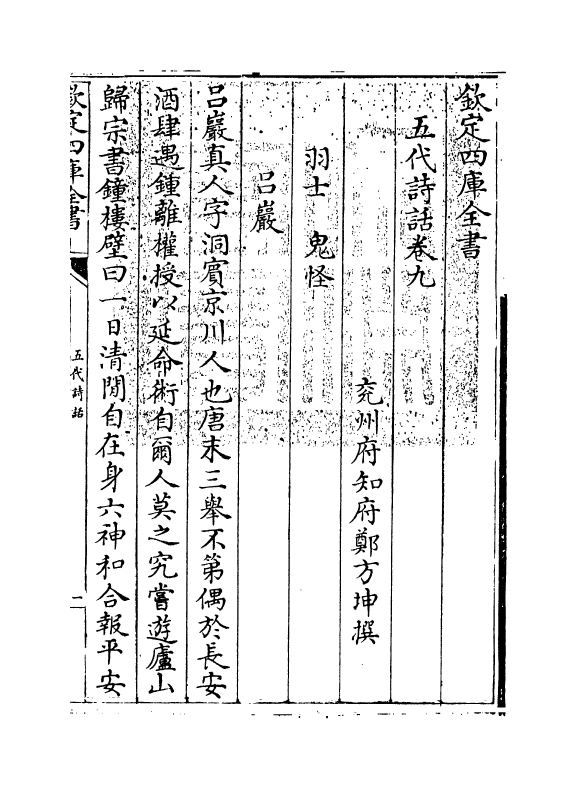 欽定四庫全書
五代詩話卷九
兖州府知府鄭方坤撰
羽士　鬼怪
吕巖
吕巖真人字洞賓京川人也唐末三舉不第偶於長安
酒肆遇鍾離權授以延命術自爾人莫之究嘗遊廬山
歸宗書鐘樓壁曰一日清閒自在身六神和合報平安
欽定四庫全書
五代詩話